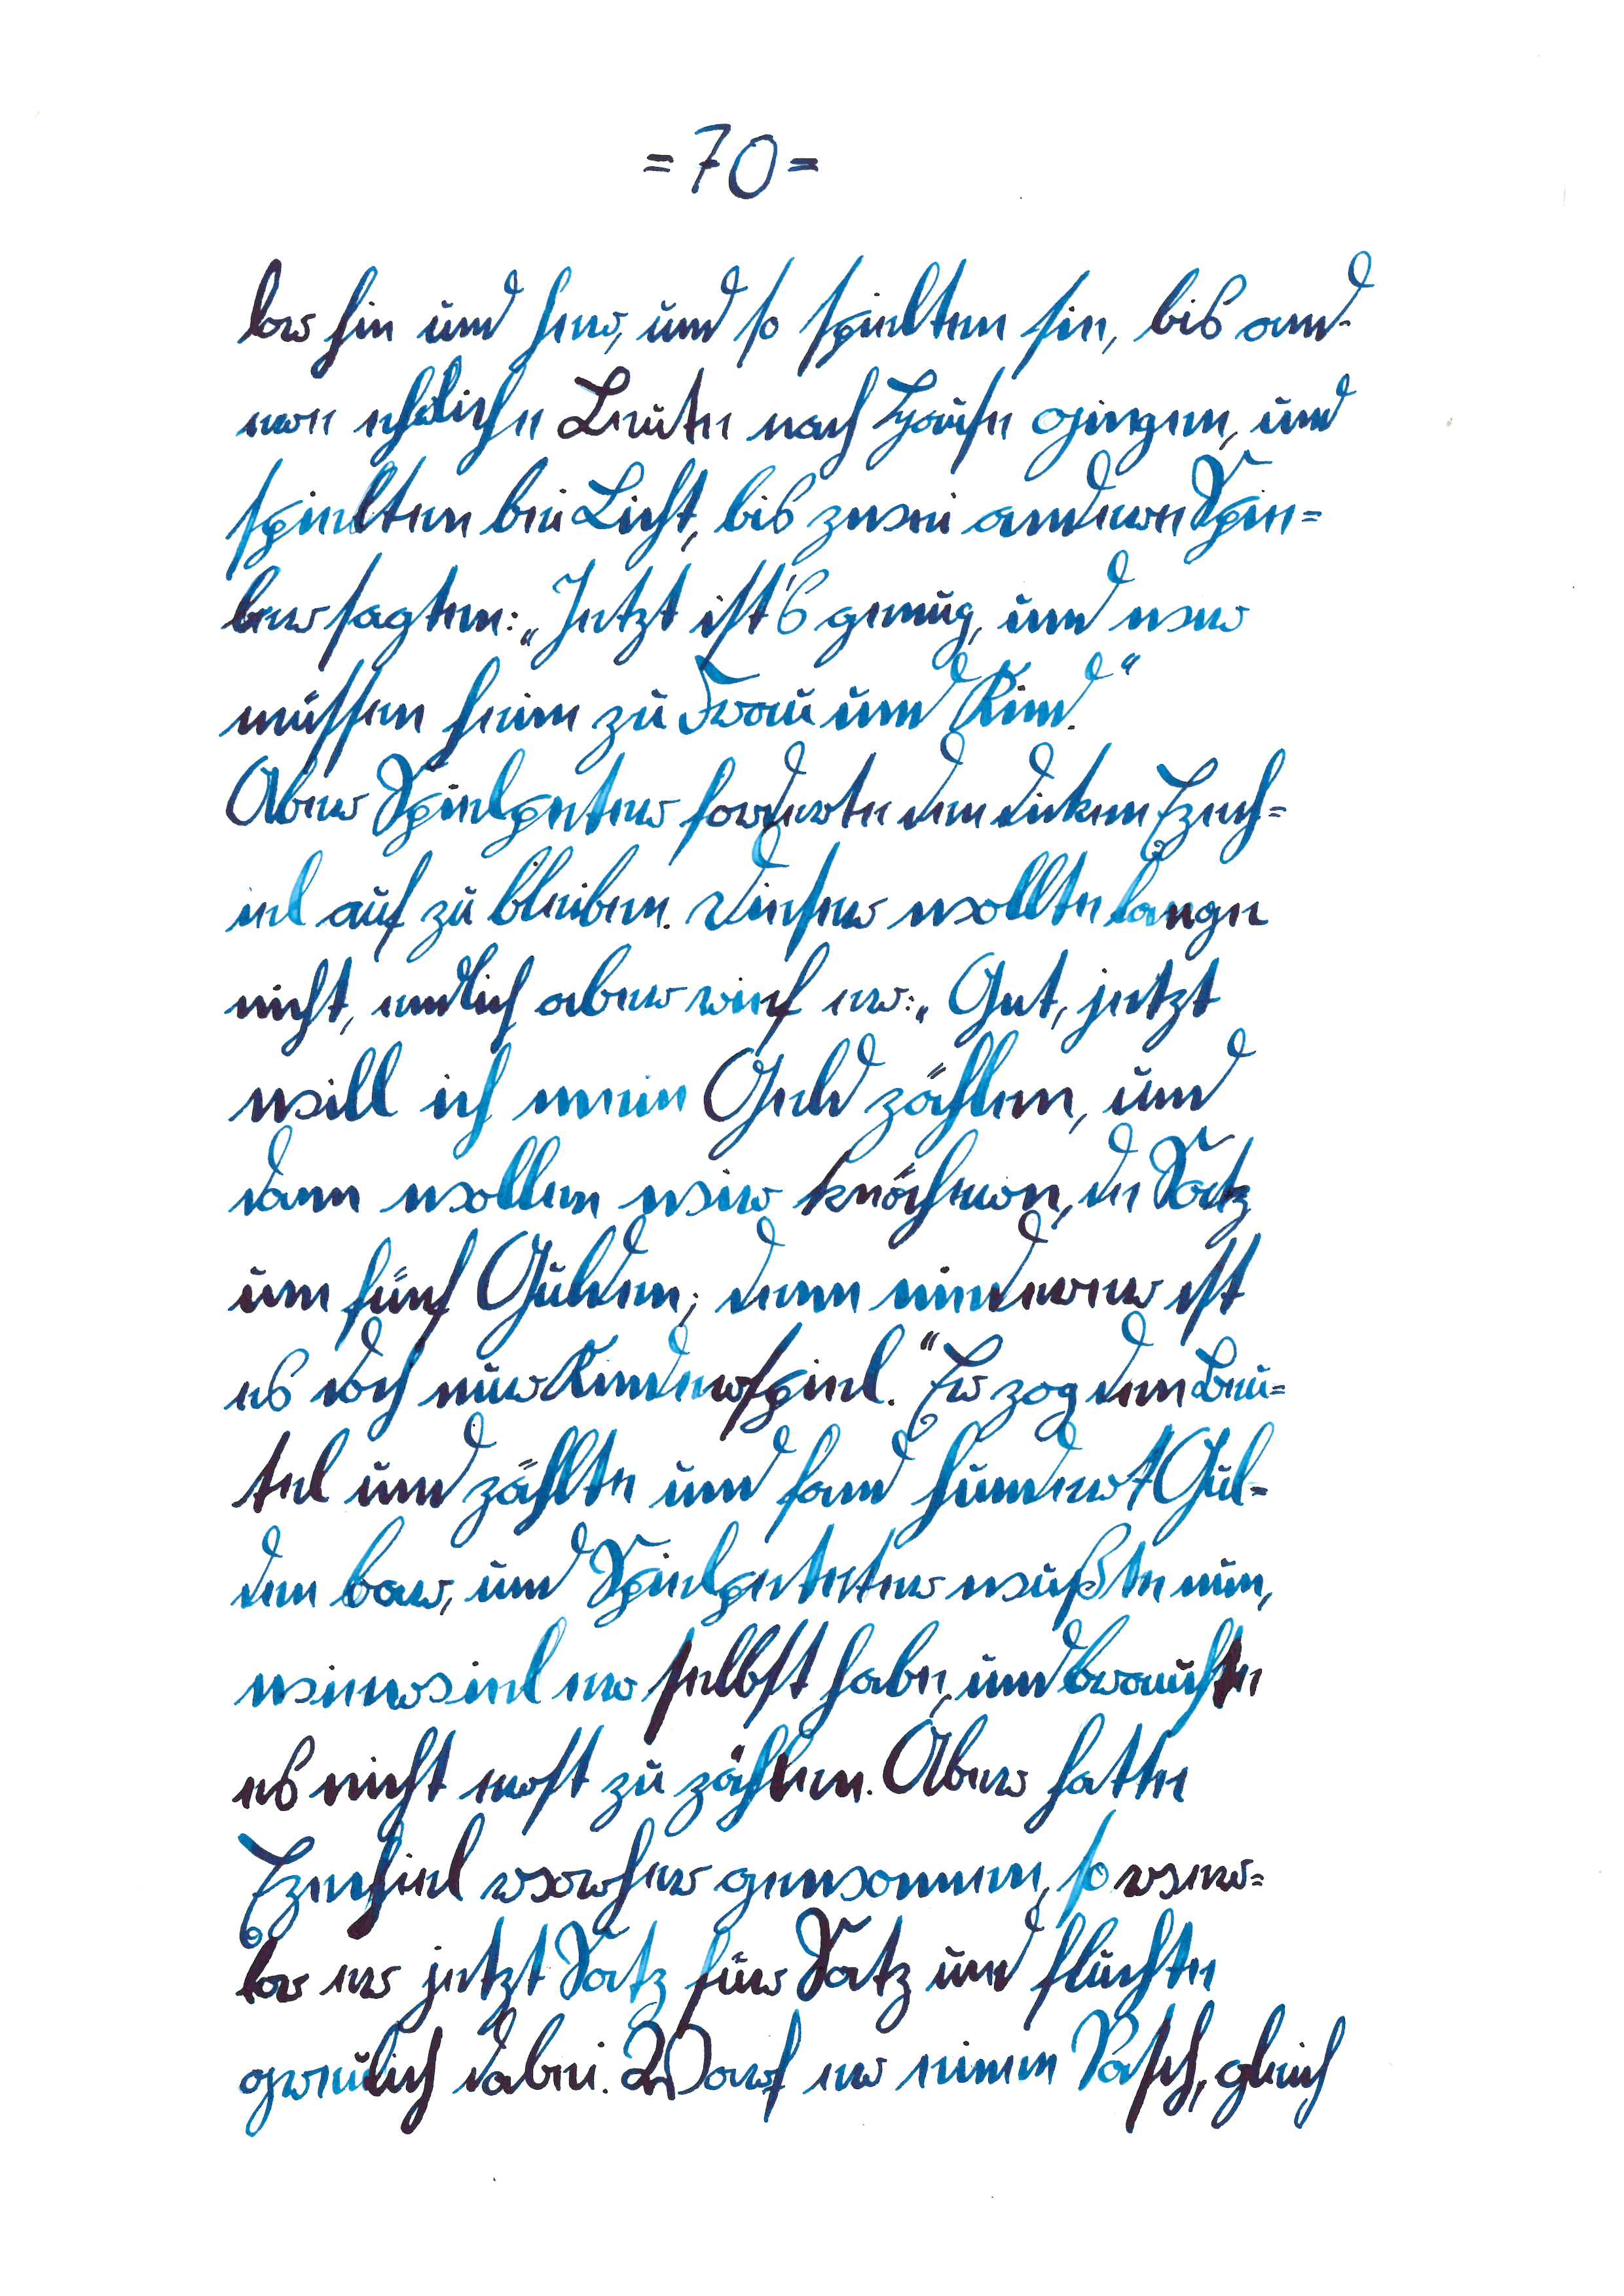 =70=
lor hin und her, und so spielten sie, bis and-
ere ehrliche Leute nach Hause gingen, und
spielten bei Licht, bis zwei andere Spie=
ler sagten: „Jetzt ist's genug, und wir
müssen heim zu Frau und Kind."
Aber Spielpeter forderte den dicken Ezech=
iel auf zu bleiben. Dieser wollte lange
nicht, endlich aber rief er: „Gut, jetzt
will ich mein Geld zählen, und
dann wollen wir knöcheln, de Satz
um fünf Gulden; denn niederer ist
es doch nur Kinderspiel." Er zog den Beu=
tel und zählte und fand hundert Gul-
den bar, und Spielpeter wußte nun,
wieviel er selbst habe, und brauchte
es nicht erst zu zählen. Aber hatte
Ezechiel vorher gewonnen, so ver=
lor er jetzt Satz für Satz und fluchte
greulich dabei. Warf er einen Pasch, gleich